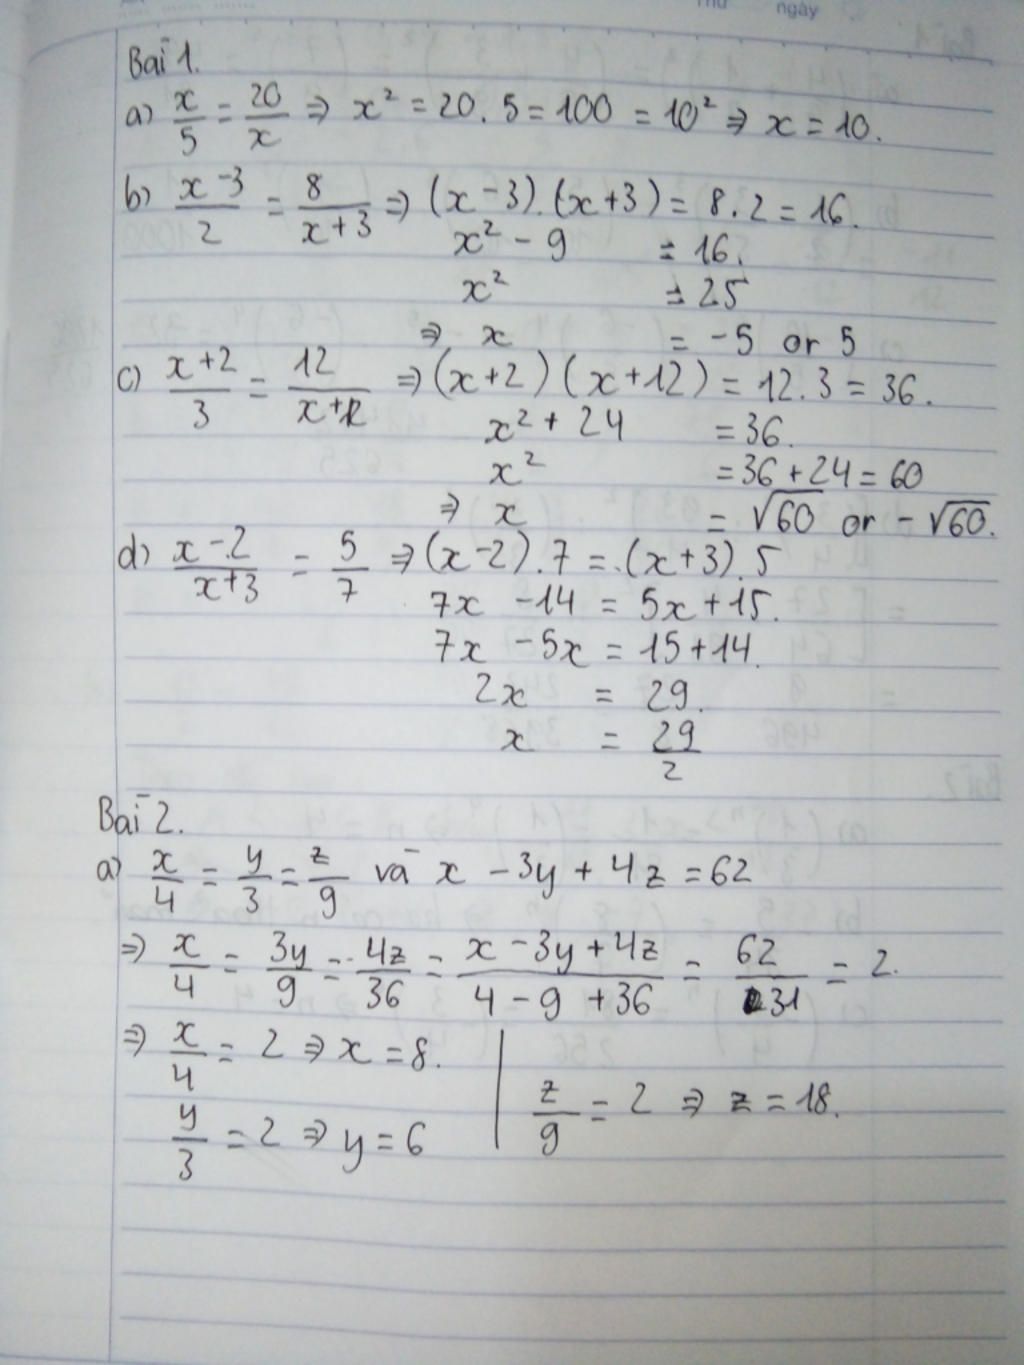 Thứ ngày
Bài 1.
a) x/5 = 20/x ⇒ x² = 20 . 5 = 100 = 10² ⇒ x = 10.
b) (x - 3)/2 = 8/(x + 3) ⇒ (x - 3).(x + 3) = 8 . 2 = 16.
x² - 9 = 16.
x² = 25
⇒ x = -5 or 5
c) (x + 2)/3 = 12/(x + 12) ⇒ (x + 2)(x + 12) = 12 . 3 = 36.
x² + 24 = 36.
x² = 36 + 24 = 60
⇒ x = √60 or - √60.
d) (x - 2)/(x + 3) = 5/7 ⇒ (x - 2) . 7 = (x + 3) . 5
7x - 14 = 5x + 15.
7x - 5x = 15 + 14.
2x = 29.
x = 29/2
Bài 2.
a) x/4 = y/3 = z/9 và x - 3y + 4z = 62
⇒ x/4 = 3y/9 = 4z/36 = (x - 3y + 4z)/(4 - 9 + 36) = 62/31 = 2.
⇒ x/4 = 2 ⇒ x = 8.
y/3 = 2 ⇒ y = 6
z/9 = 2 ⇒ z = 18.